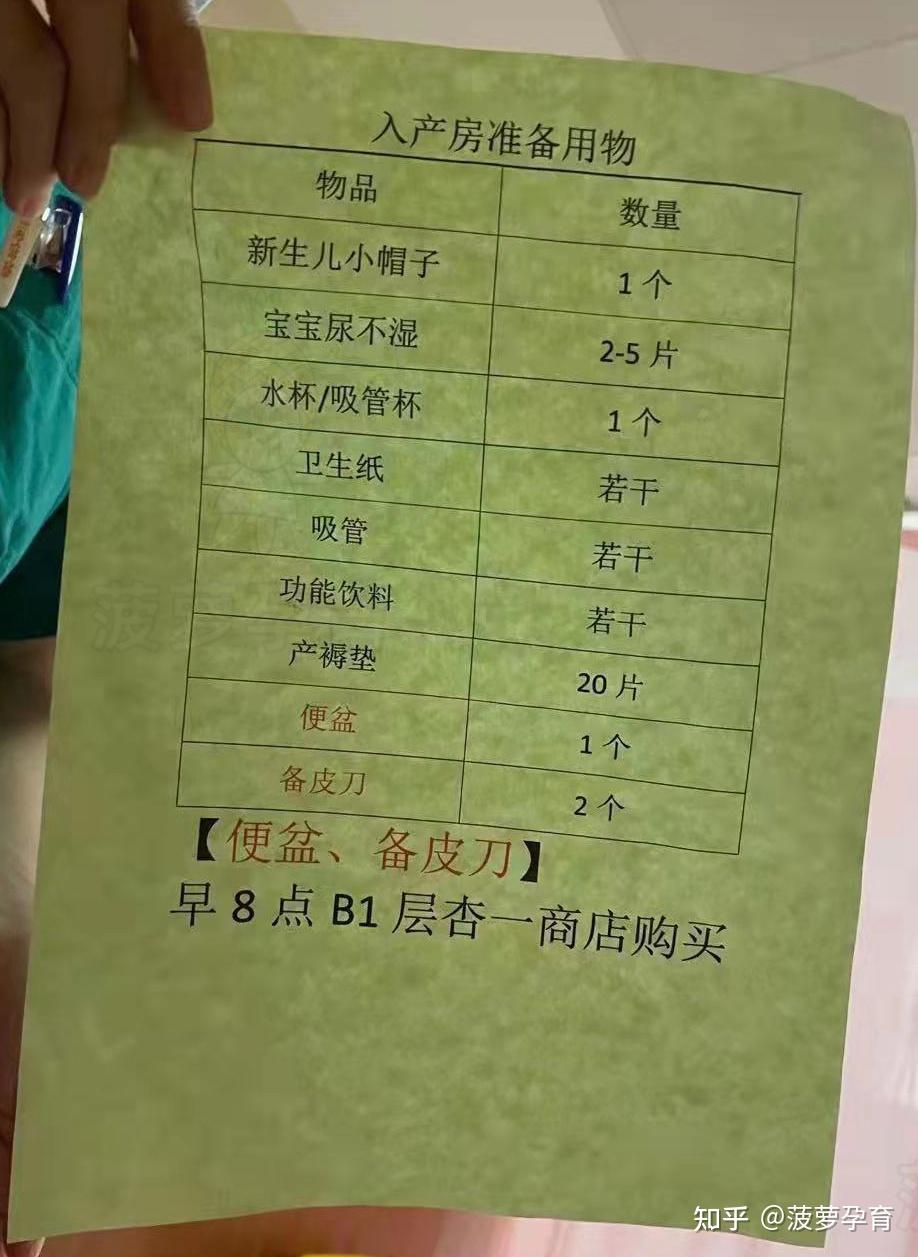 入产房准备用物
物品 数量
新生儿小帽子 1个
宝宝尿不湿 2-5片
水杯/吸管杯 1个
卫生纸 若干
吸管 若干
功能饮料 若干
产褥垫 20片
便盆 1个
备皮刀 2个
【便盆、备皮刀】
早8点B1层杏一商店购买
知乎 @菠萝孕育